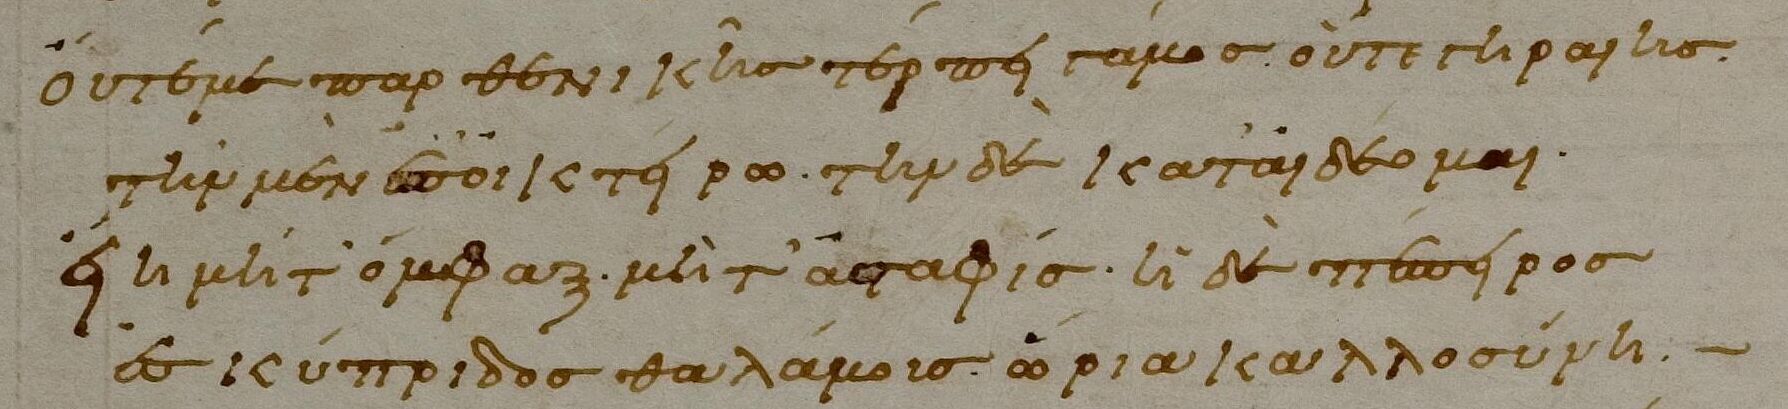 οὔτέ με παρθενικῆς τέρπει γάμος. οὔτε γηραιῆς.
τὴν μὲν ἐποικτείρω. τὴν δὲ καταιδέομαι.
εἴη μήτ' ὄμφαξ. μήτ' ἀσταφίς. ἡ δὲ πέπειρος
ἐς κύπριδος θαλάμοις ὥρια καλλοσύνη.